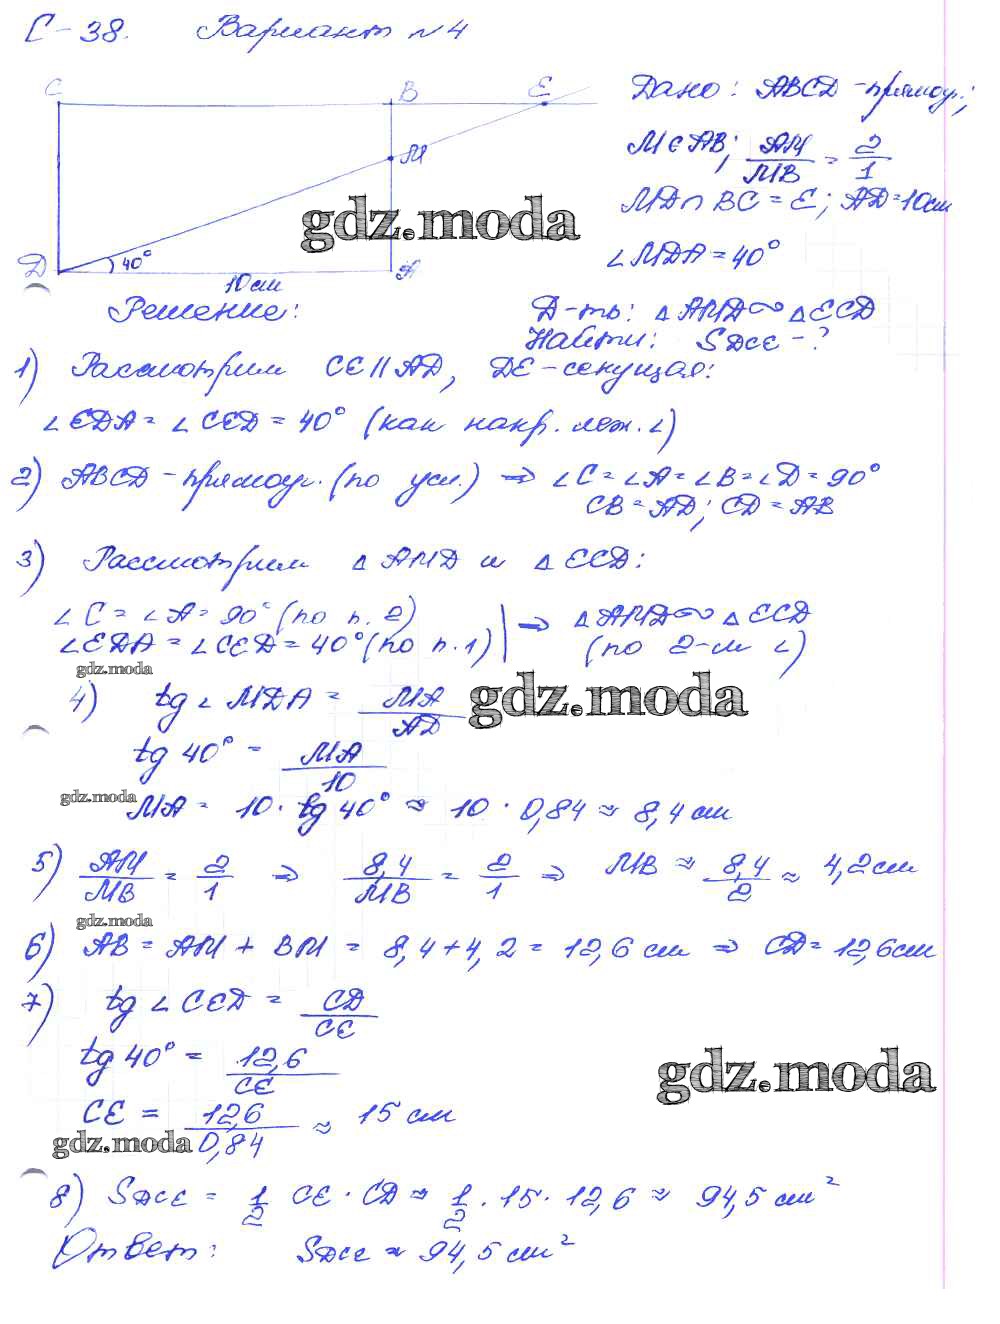 С-38. Вариант №4
C B E
Дано: ABCD - прямоуг.;
M
M∈AB; AM/MB = 2/1
MD∩BC = E; AD=10см
gdz.moda
∠MDA = 40°
D 40° A
10 см
Решение:
Д-ть: △AMD ∾ △ECD
Найти: SDCE - ?
1) Рассмотрим CE∥AD, DE - секущая:
∠EDA = ∠CED = 40° (как накр. леж. ∠)
2) ABCD - прямоуг. (по усл.) ⇒ ∠C = ∠A = ∠B = ∠D = 90°
CB = AD; CD = AB
3) Рассмотрим △AMD и △ECD:
∠C = ∠A = 90° (по п. 2)
∠EDA = ∠CED = 40° (по п. 1) | ⇒ △AMD ∾ △ECD
(по 2-м ∠)
gdz.moda
gdz.moda
4) tg ∠MDA = MA/AD
tg 40° = MA/10
gdz.moda
MA = 10 · tg 40° ≈ 10 · 0,84 ≈ 8,4 см
5) AM/MB = 2/1 ⇒ 8,4/MB = 2/1 ⇒ MB ≈ 8,4/2 ≈ 4,2 см
gdz.moda
6) AB = AM + BM = 8,4 + 4,2 = 12,6 см ⇒ CD = 12,6 см
7) tg ∠CED = CD/CE
tg 40° = 12,6/CE
gdz.moda
CE = 12,6/0,84 ≈ 15 см
gdz.moda
8) SDCE = 1/2 CE · CD ≈ 1/2 · 15 · 12,6 ≈ 94,5 см²
Ответ: SDCE ≈ 94,5 см²